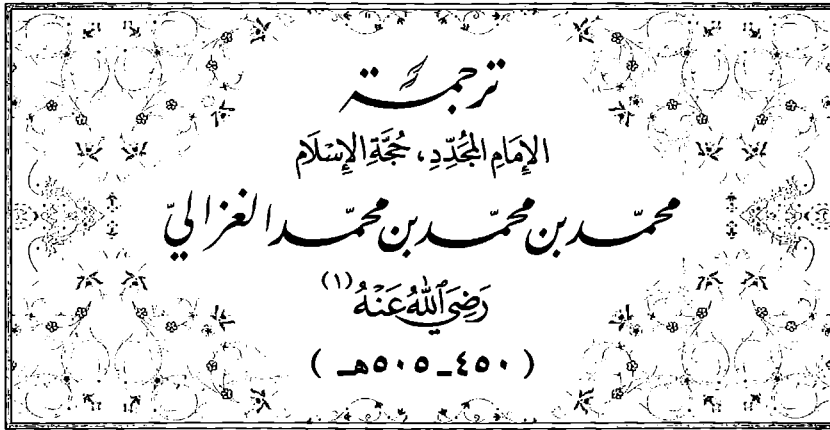 ترجمة
الإِمَامِ المُجَدِّدِ، حُجَّةِ الإِسْلَامِ
محمّد بن محمّد بن محمّد الغزاليّ
رَضِيَ ٱللّٰهُ عَنْهُ (١)
( ٤٥٠ـ ٥٠٥هـ )